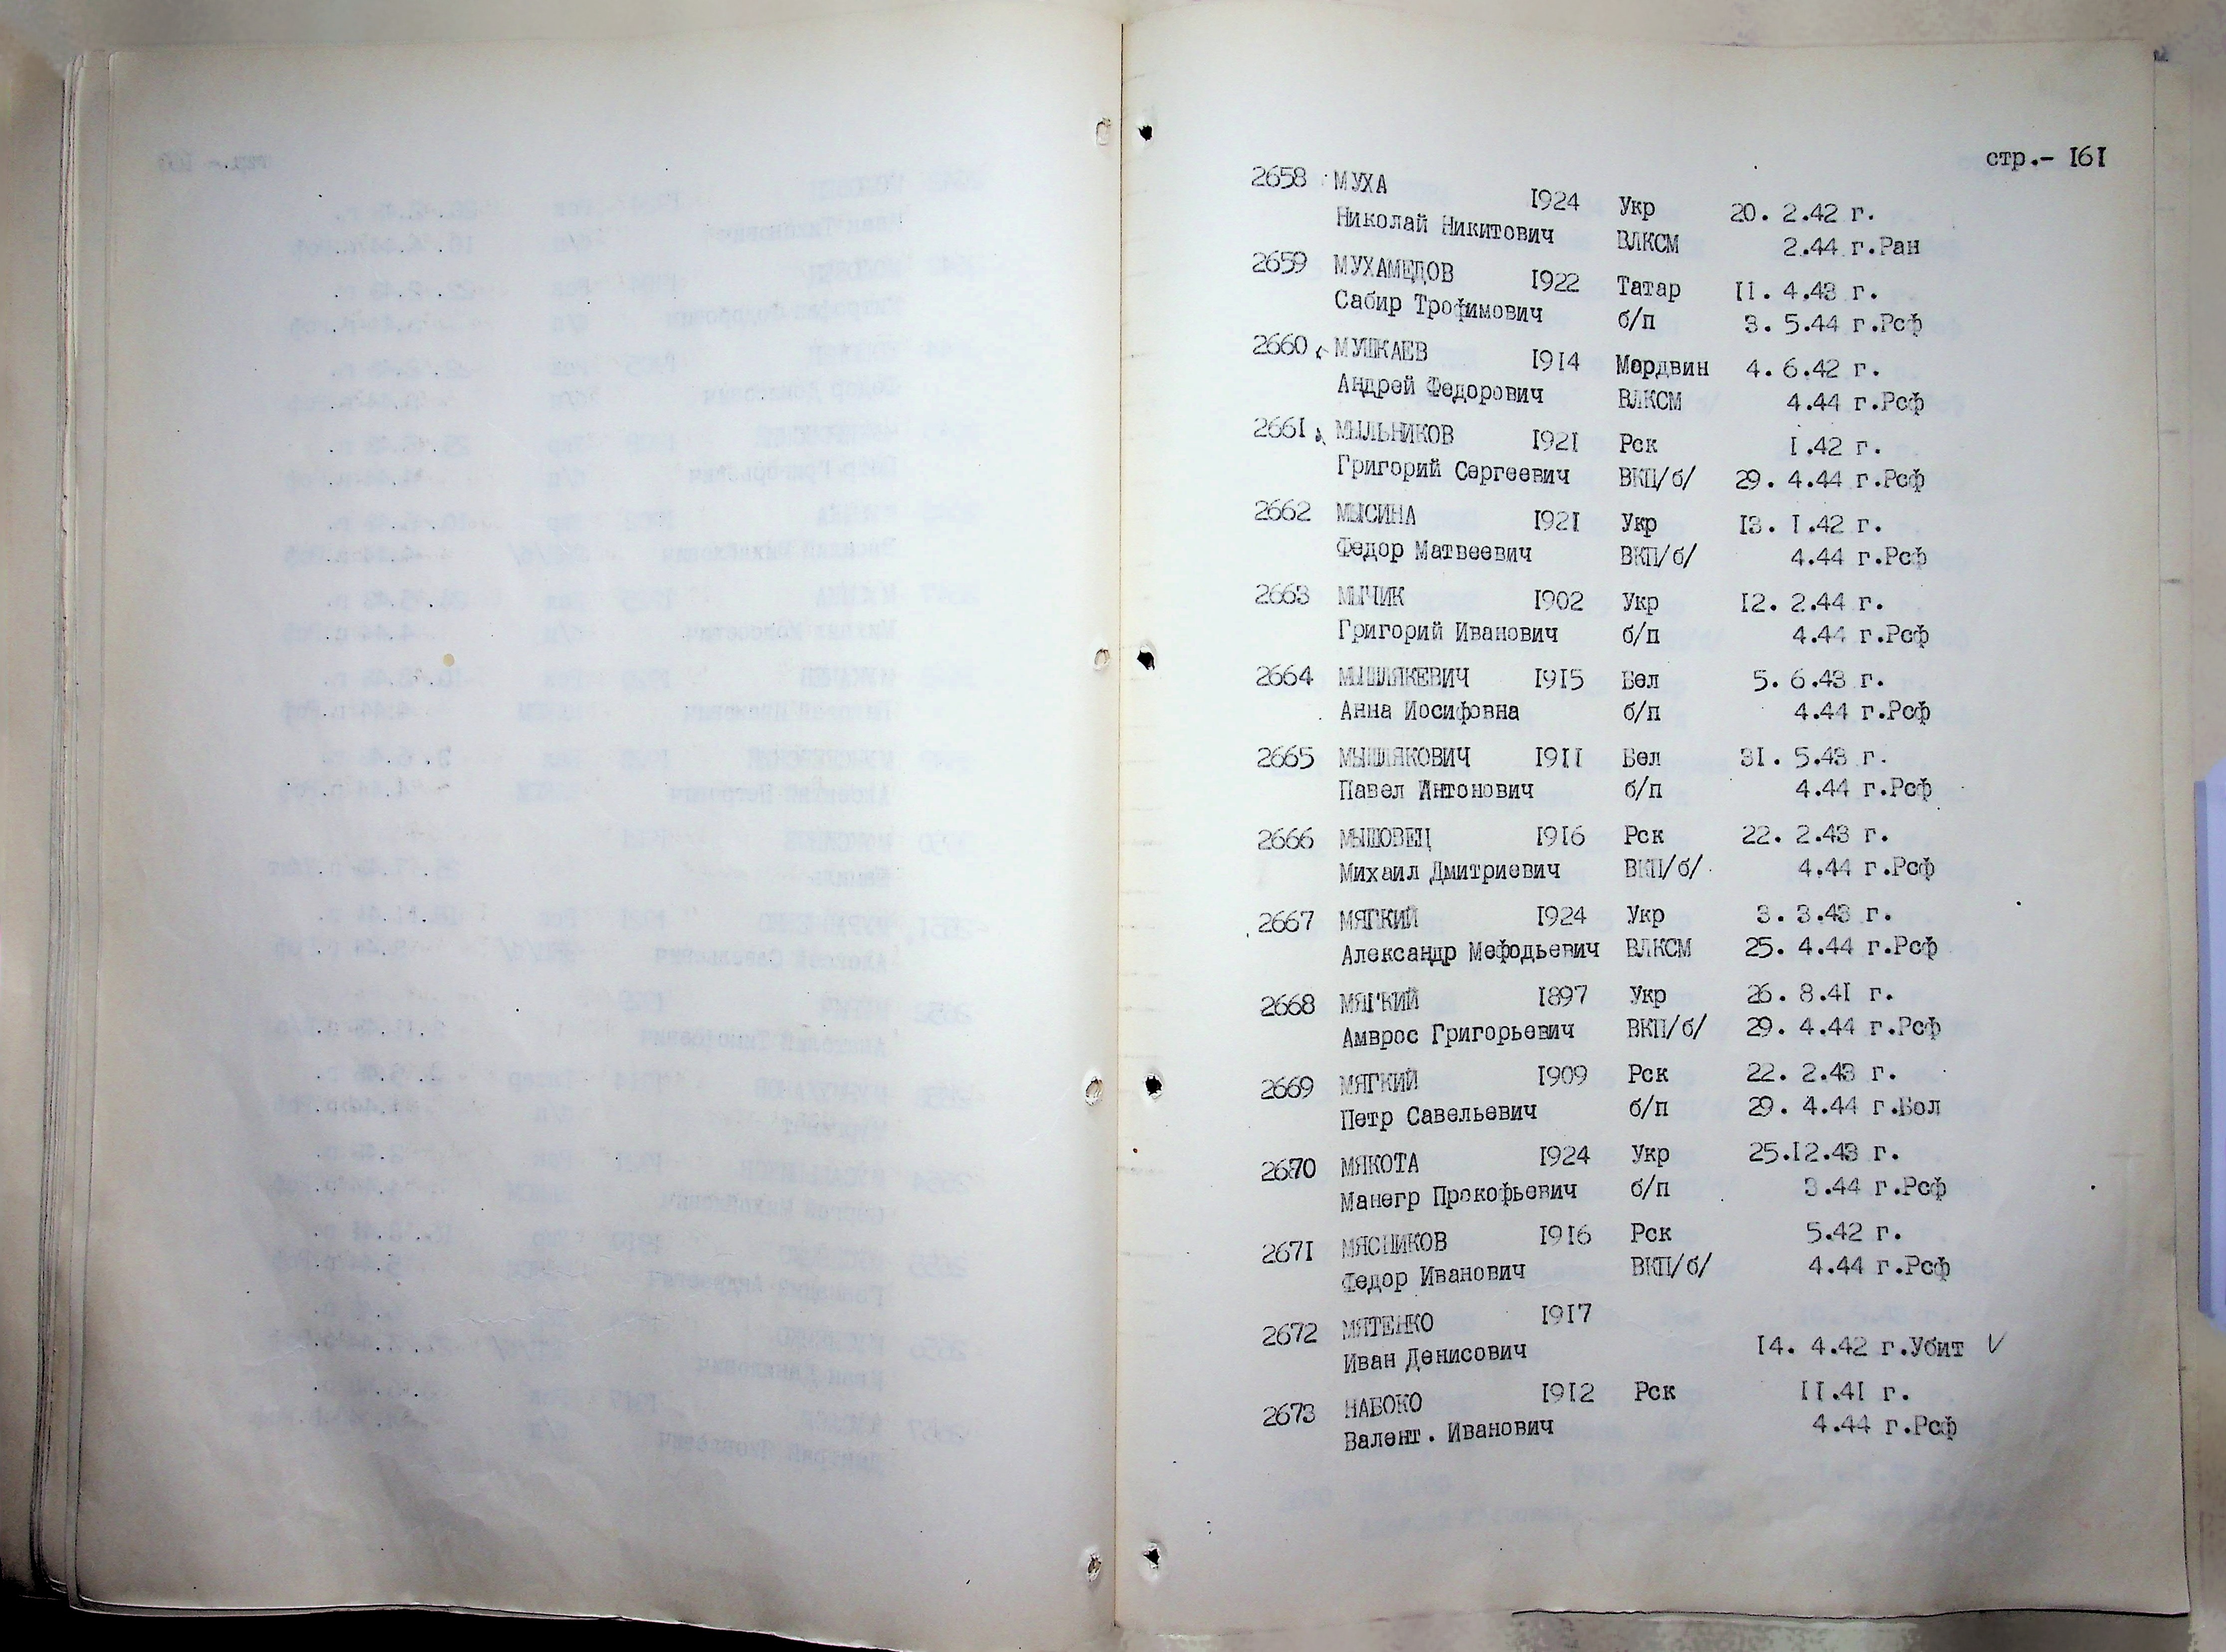 стр.- I6I
2658 МУХА I924 Укр 20. 2.42 г.
Николай Никитович ВЛКСМ 2.44 г.Ран
2659 МУХАМЕДОВ I922 Татар II. 4.43 г.
Сабир Трофимович б/п 3. 5.44 г.Рсф
2660 МУШКАЕВ I9I4 Мордвин 4. 6.42 г.
Андрей Федорович ВЛКСМ 4.44 г.Рсф
266I МЫЛЬНИКОВ I92I Рск I.42 г.
Григорий Сергеевич ВКП/б/ 29. 4.44 г.Рсф
2662 МЫСИНА I92I Укр I3. I.42 г.
Федор Матвеевич ВКП/б/ 4.44 г.Рсф
2663 МЫЧИК I902 Укр I2. 2.44 г.
Григорий Иванович б/п 4.44 г.Рсф
2664 МЫШЛЯКЕВИЧ I9I5 Бел 5. 6.43 г.
Анна Иосифовна б/п 4.44 г.Рсф
2665 МЫШЛЯКОВИЧ I9II Бел 3I. 5.43 г.
Павел Антонович б/п 4.44 г.Рсф
2666 МЫШОВЕЦ I9I6 Рск 22. 2.43 г.
Михаил Дмитриевич ВКП/б/ 4.44 г.Рсф
2667 МЯГКИЙ I924 Укр 3. 3.43 г.
Александр Мефодьевич ВЛКСМ 25. 4.44 г.Рсф
2668 МЯГКИЙ I897 Укр 26. 8.4I г.
Амврос Григорьевич ВКП/б/ 29. 4.44 г.Рсф
2669 МЯГКИЙ I909 Рск 22. 2.43 г.
Петр Савельевич б/п 29. 4.44 г.Бол
2670 МЯКОТА I924 Укр 25.I2.43 г.
Манегр Прокофьевич б/п 3.44 г.Рсф
267I МЯСНИКОВ I9I6 Рск 5.42 г.
Федор Иванович ВКП/б/ 4.44 г.Рсф
2672 МЯТЕНКО I9I7
Иван Денисович I4. 4.42 г.Убит V
2673 НАБОКО I9I2 Рск II.4I г.
Валент. Иванович 4.44 г.Рсф